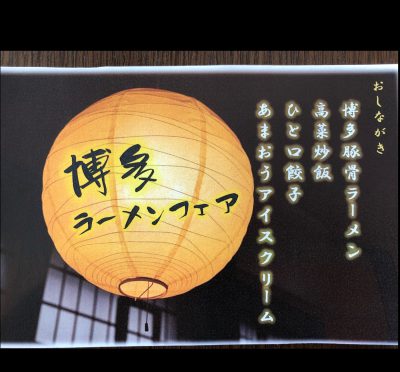 博多
ラーメンフェア
おしながき
博多豚骨ラーメン
高菜炒飯
ひと口餃子
あまおうアイスクリーム